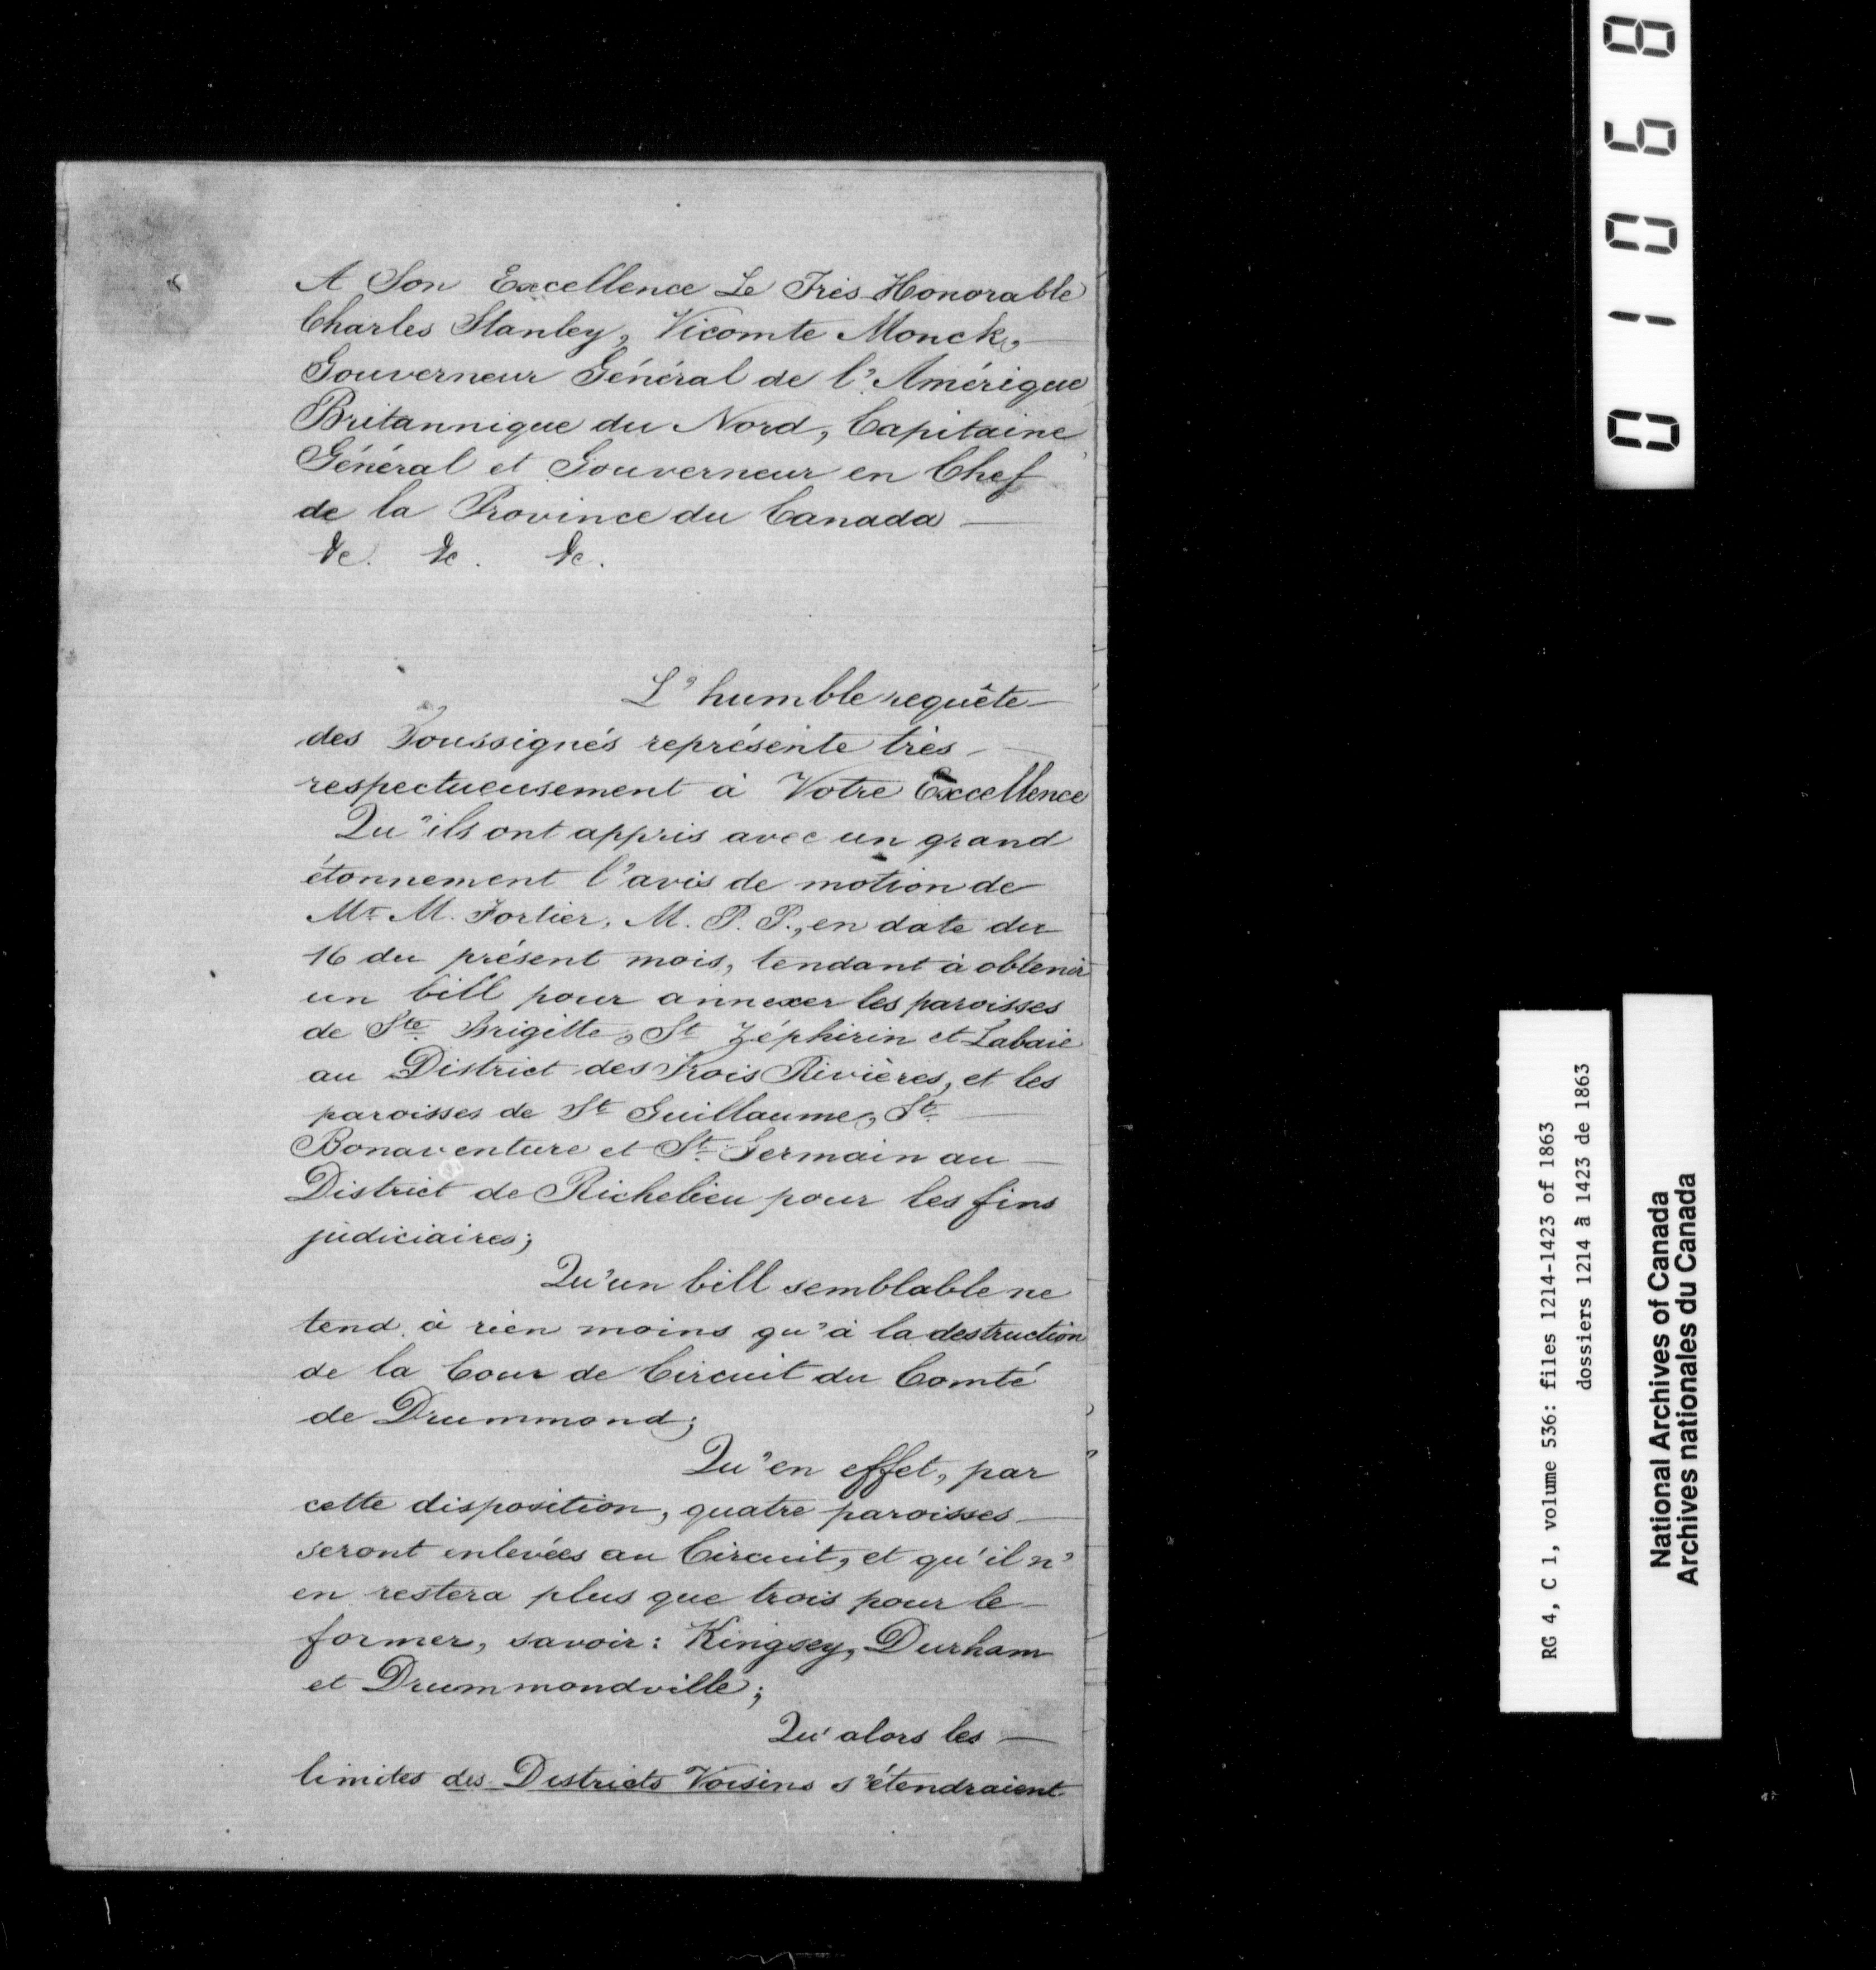 A Son Excellence Le Très-Honorable
Charles Stanley, Vicomte Monck,
Gouverneur Général de l'Amérique
Britannique du Nord, Capitaine
Général et Gouverneur en Chef
de la Province du Canada —
&c. &c. &c.
L'humble requête —
des Soussignés représente très —
respectueusement à Votre Excellence
Qu'ils ont appris avec un grand
étonnement l'avis de motion de
Mr. M. Fortier, M. P. P., en date du
16 du présent mois, tendant à obtenir
un bill pour annexer les paroisses
de Ste. Brigitte, St Zéphirin et Labaie
au District des Trois Rivières, et les
paroisses de St Guillaume, St. —
Bonaventure et St. Germain au —
District de Richelieu pour les fins
judiciaires;
Qu'un bill semblable ne
tend à rien moins qu'à la destruction
de la Cour de Circuit du Comté
de Drummond;
Qu'en effet, par
cette disposition, quatre paroisses —
seront enlevées au Circuit, et qu'il n'
en restera plus que trois pour le —
former, savoir: Kingsey, Durham
et Drummondville;
Qu'alors les —
limites des Districts Voisins s'étendraient
01068
RG 4, C 1, volume 536: files 1214-1423 of 1863
dossiers 1214 à 1423 de 1863
National Archives of Canada
Archives nationales du Canada